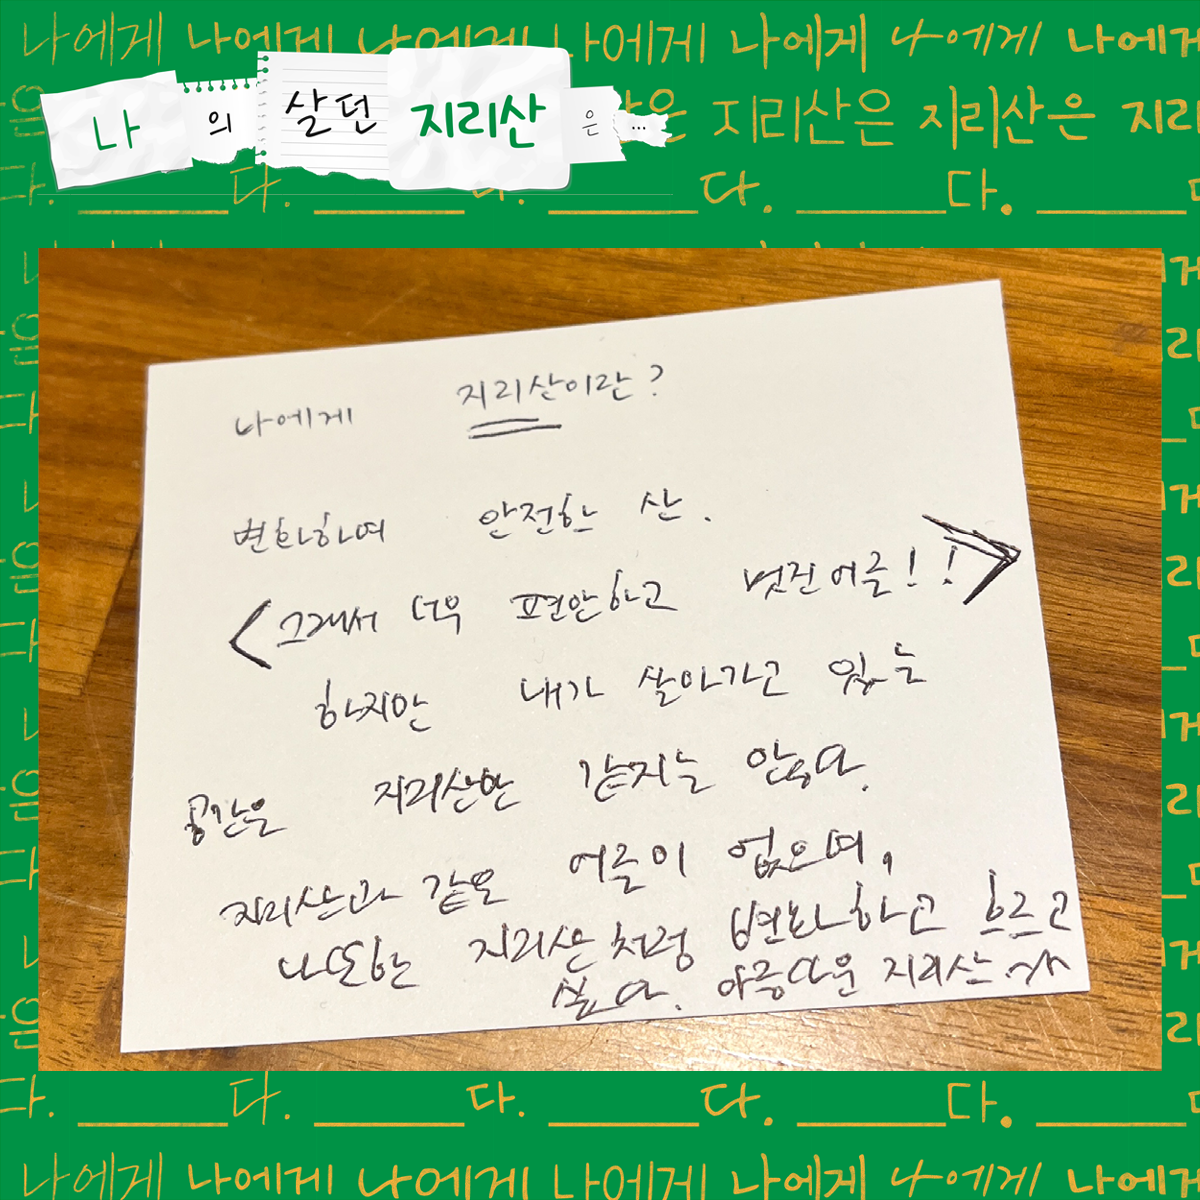 나에게 나에게 나에게 나에게 나에게 나에게 나에게
나의 살던 지리산은...
은 지리산은 지리산은 지리
다. 다. 다. 다.
나에게 지리산이란?
변화하며 안전한 산.
<그래서 더욱 편안하고 멋진어른!!>
하지만 내가 살아가고 있는
공간은 지리산만 같지는 않다.
지리산과 같은 어른이 없으며,
나또한 지리산처럼 변화하고 흐르고
싶다. 아름다운 지리산^^
다. 다. 다. 다. 다.
나에게 나에게 나에게 나에게 나에게 나에게 나에게